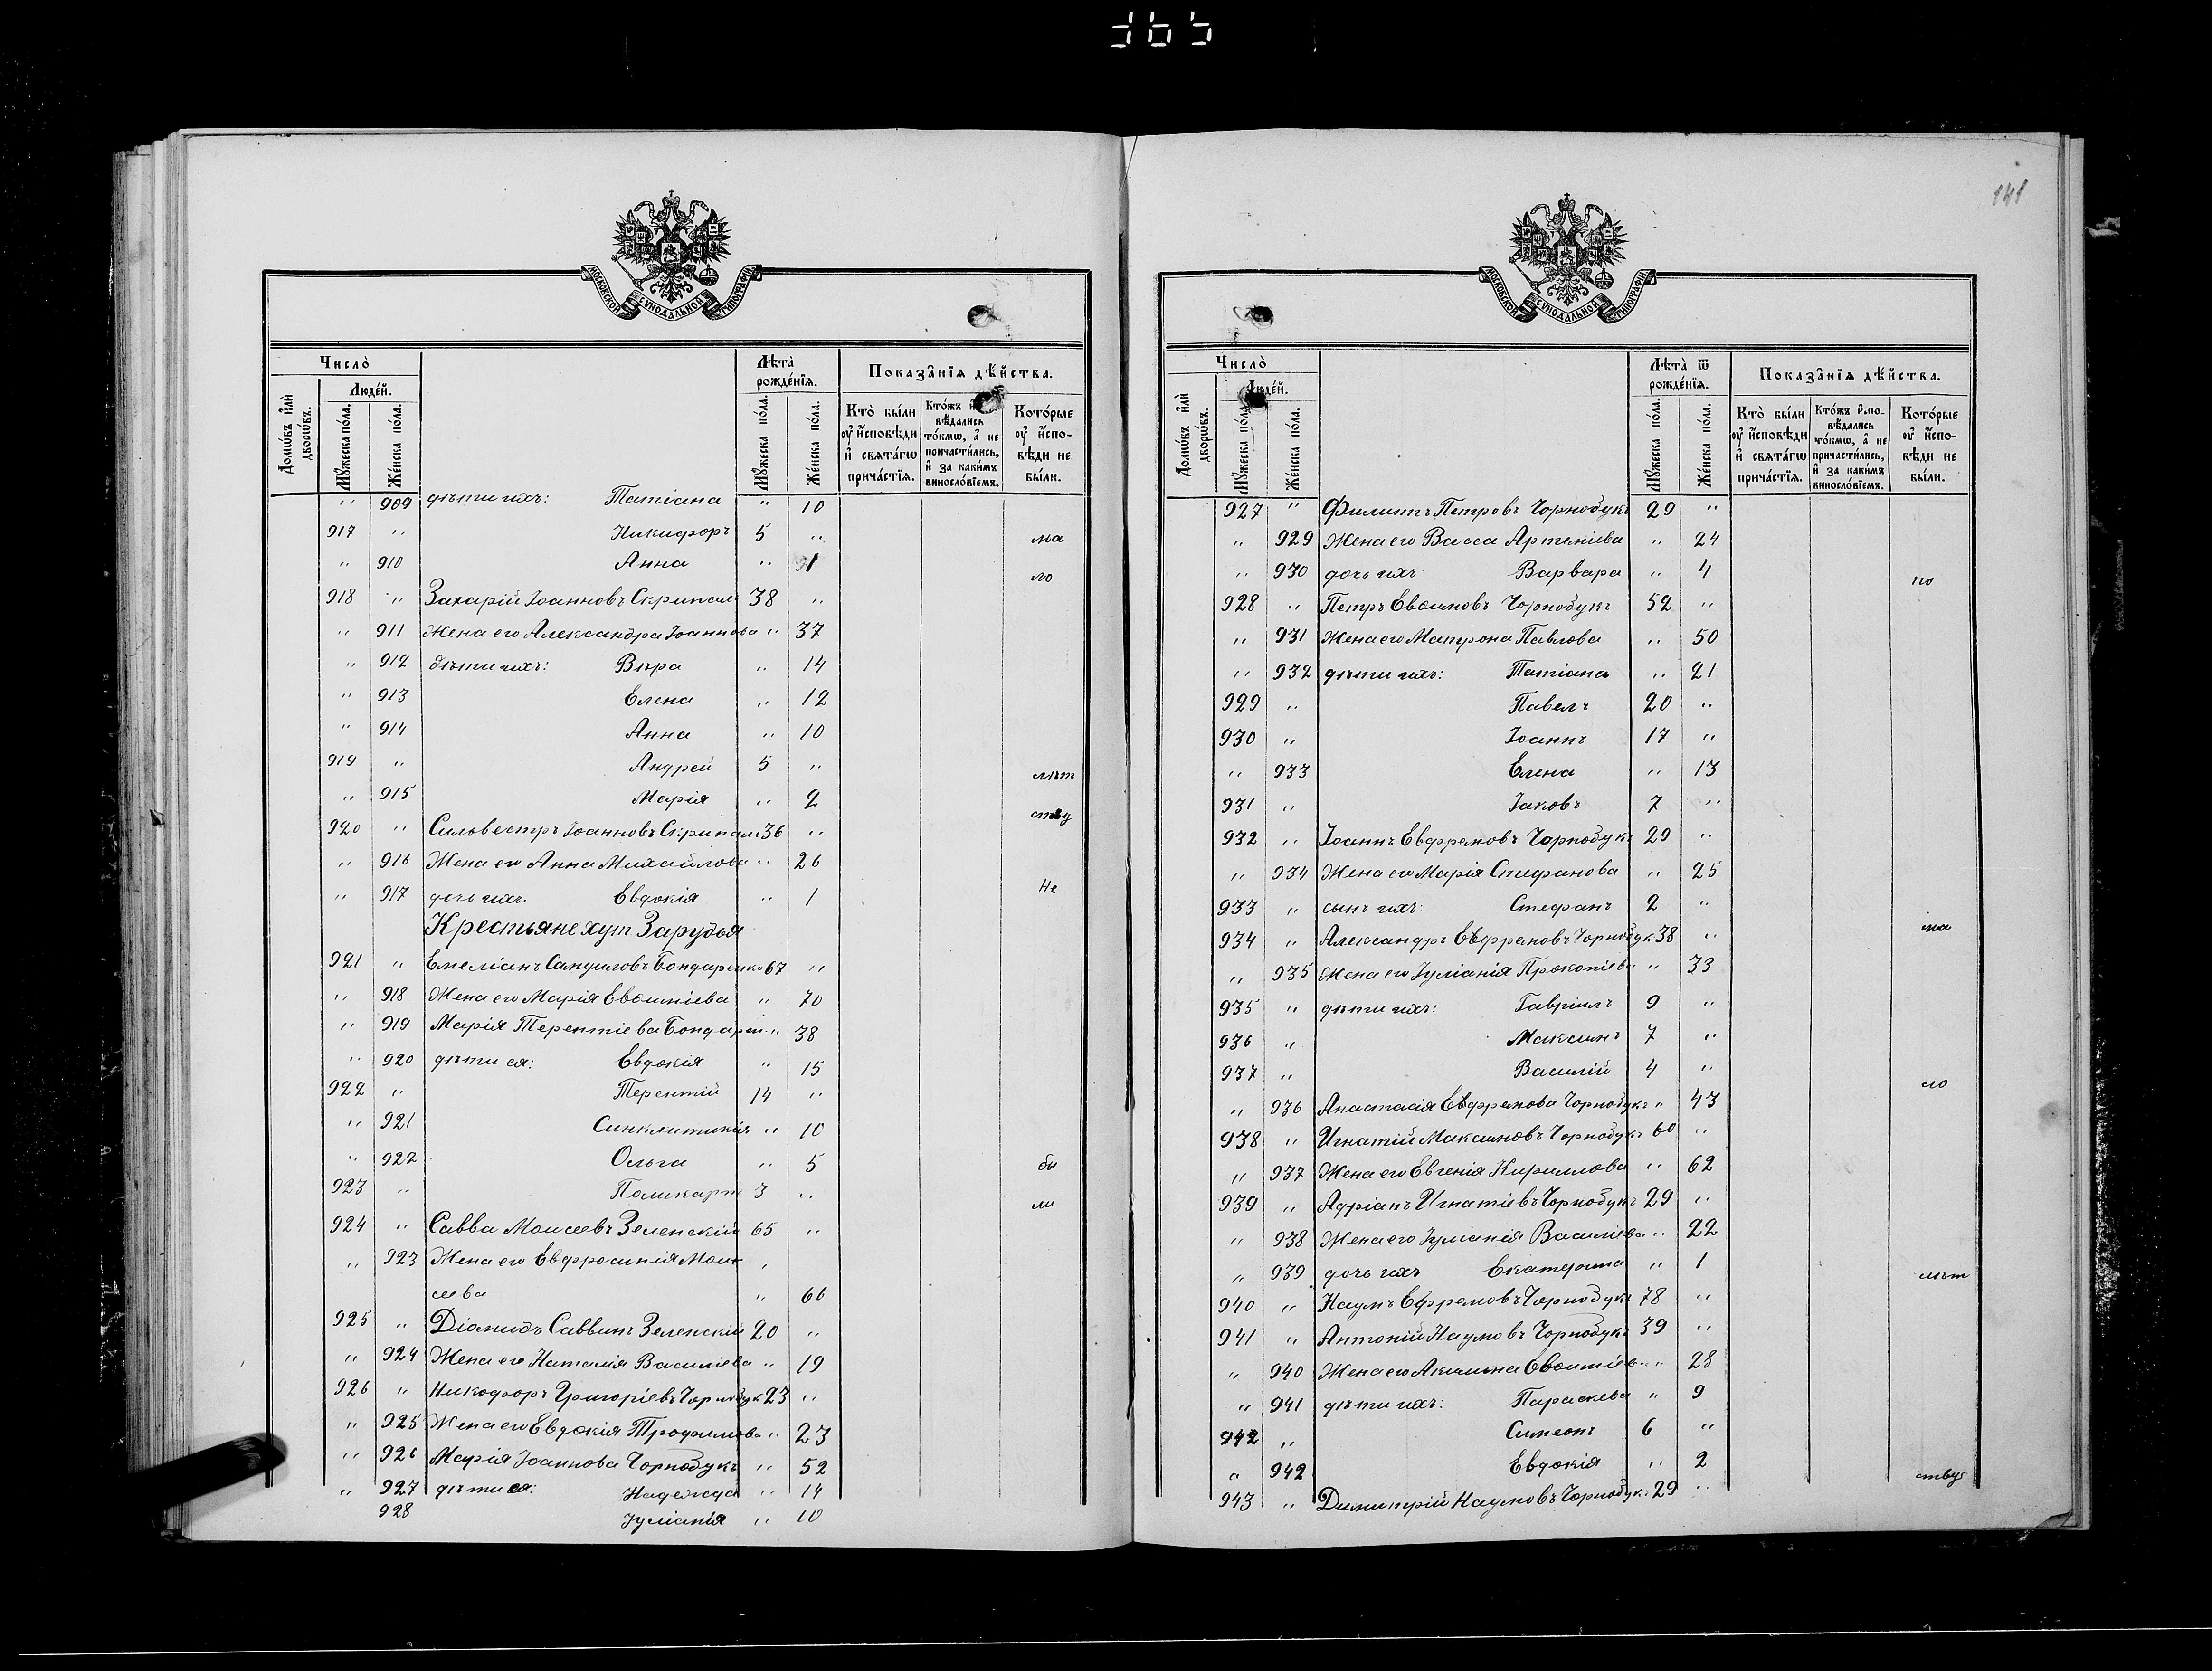 365
141
МОСКОВСКОЙ СУНОДАЛЬНОЙ ТИПОГРАФІИ
Число̀
Людéй.
Домѡ́въ и҆лѝ дворѡ́въ.
Мꙋ́жеска по́ла.
Же́нска по́ла.
Лѣ́та рожде́нїѧ.
Мꙋ́жеска по́ла.
Же́нска по́ла.
Показа̑нїѧ дѣ́йства.
Кто̀ бы́ли ᲂу҆ и҆́сповѣди и҆ свѧта́гѡ прича́стїѧ.
Кто́жъ и҆сповѣ́дались то́кмѡ, а҆ не причасти́лись, и҆ за каки́мъ винослові́емъ.
Кото́рые ᲂу҆ и҆́сповѣди не бы́ли.
" 909 дѣти ихъ: Татіана " 10
917 " Никифоръ 5 " ма
" 910 Анна " 1
ло
918 " Захарій Іоанновъ Скрипал 38 "
" 911 Жена его Александра Іоаннова " 37
" 912 дѣти ихъ: Вѣра " 14
" 913 Елена " 12
" 914 Анна " 10
919 " Андрей 5 " лѣт
" 915 Марія " 2
ству
920 " Сильвестръ Іоанновъ Скрипал 36 "
" 916 Жена его Анна Михайлова " 26
" 917 дочь ихъ. Евдокія " 1 Не
Крестьяне хут Зарудья
921 " Емеліанъ Самуиловъ Бондаренко 67 "
" 918 Жена его Марія Евѳиміева " 70
" 919 Марія Терентіева Бондарен " 38
" 920 дѣти ея: Евдокія " 15
922 " Терентій 14 "
" 921 Синклитикія " 10
" 922 Ольга " 5 бы
923 " Поликарп 3 " ли
924 " Савва Моисеевъ Зеленскій 65 "
" 923 Жена его Евфросинія Мои "
сеева " 66
925 " Діомидъ Саввинъ Зеленскій 20 "
" 924 Жена его Наталія Василіева " 19
926 " Никифоръ Григоріевъ Чорнобук 23 "
" 925 Жена его Евдокія Трофимова " 23
" 926 Марія Іоаннова Чорнобукъ " 52
" 927 дѣти ея: Надежда " 14
928 Іуліанія " 10
МОСКОВСКОЙ СУНОДАЛЬНОЙ ТИПОГРАФІИ
Число̀
Людéй.
Домѡ́въ и҆лѝ дворѡ́въ.
Мꙋ́жеска по́ла.
Же́нска по́ла.
Лѣ́та ѿ рожде́нїѧ.
Мꙋ́жеска по́ла.
Же́нска по́ла.
Показа̑нїѧ дѣ́йства.
Кто̀ бы́ли ᲂу҆ и҆́сповѣди и҆ свѧта́гѡ прича́стїѧ.
Кто́жъ и҆сповѣ́дались то́кмѡ, а҆ не причасти́лись, и҆ за каки́мъ винослові́емъ.
Кото́рые ᲂу҆ и҆́сповѣди не бы́ли.
927 " Филиппъ Петровъ Чорнобукъ 29 "
" 929 Жена его Васса Артеміева " 24
" 930 дочь ихъ Варвара " 4 по
928 " Петръ Евѳимовъ Чорнобукъ 52 "
" 931 Жена его Матрона Павлова " 50
" 932 дѣти ихъ: Татіана " 21
929 " Павелъ 20 "
930 " Іоаннъ 17 "
" 933 Елена " 13
931 " Іаковъ 7 "
932 " Іоаннъ Евфремовъ Чорнобукъ 29 "
" 934 Жена его Марія Стефанова " 25
933 " сынъ ихъ: Стефанъ 2 "
934 " Александръ Евфремовъ Чорнобук 38 " ма
" 935 Жена его Іуліанія Прокопіева " 33
935 " дѣти ихъ: Гавріилъ 9 "
936 " Максимъ 7 "
937 " Василій 4 " ло
" 936 Анастасія Евфремова Чорнобукъ " 43
938 " Игнатій Максимовъ Чорнобукъ 60 "
" 937 Жена его Евгенія Кириллова " 62
939 " Адріанъ Игнатіевъ Чорнобукъ 29 "
" 938 Жена его Іуліанія Василіева " 22
" 939 дочь ихъ Екатерина " 1 лѣт
940 " Наумъ Ефремовъ Чорнобукъ 78 "
941 " Антоній Наумовъ Чорнобукъ 39 "
" 940 Жена его Акилина Евѳиміев " 28
" 941 дѣти ихъ: Параскева " 9
942 " Симеонъ 6 "
" 942 Евдокія " 2 ству
943 " Димитрій Наумовъ Чорнобук 29 "